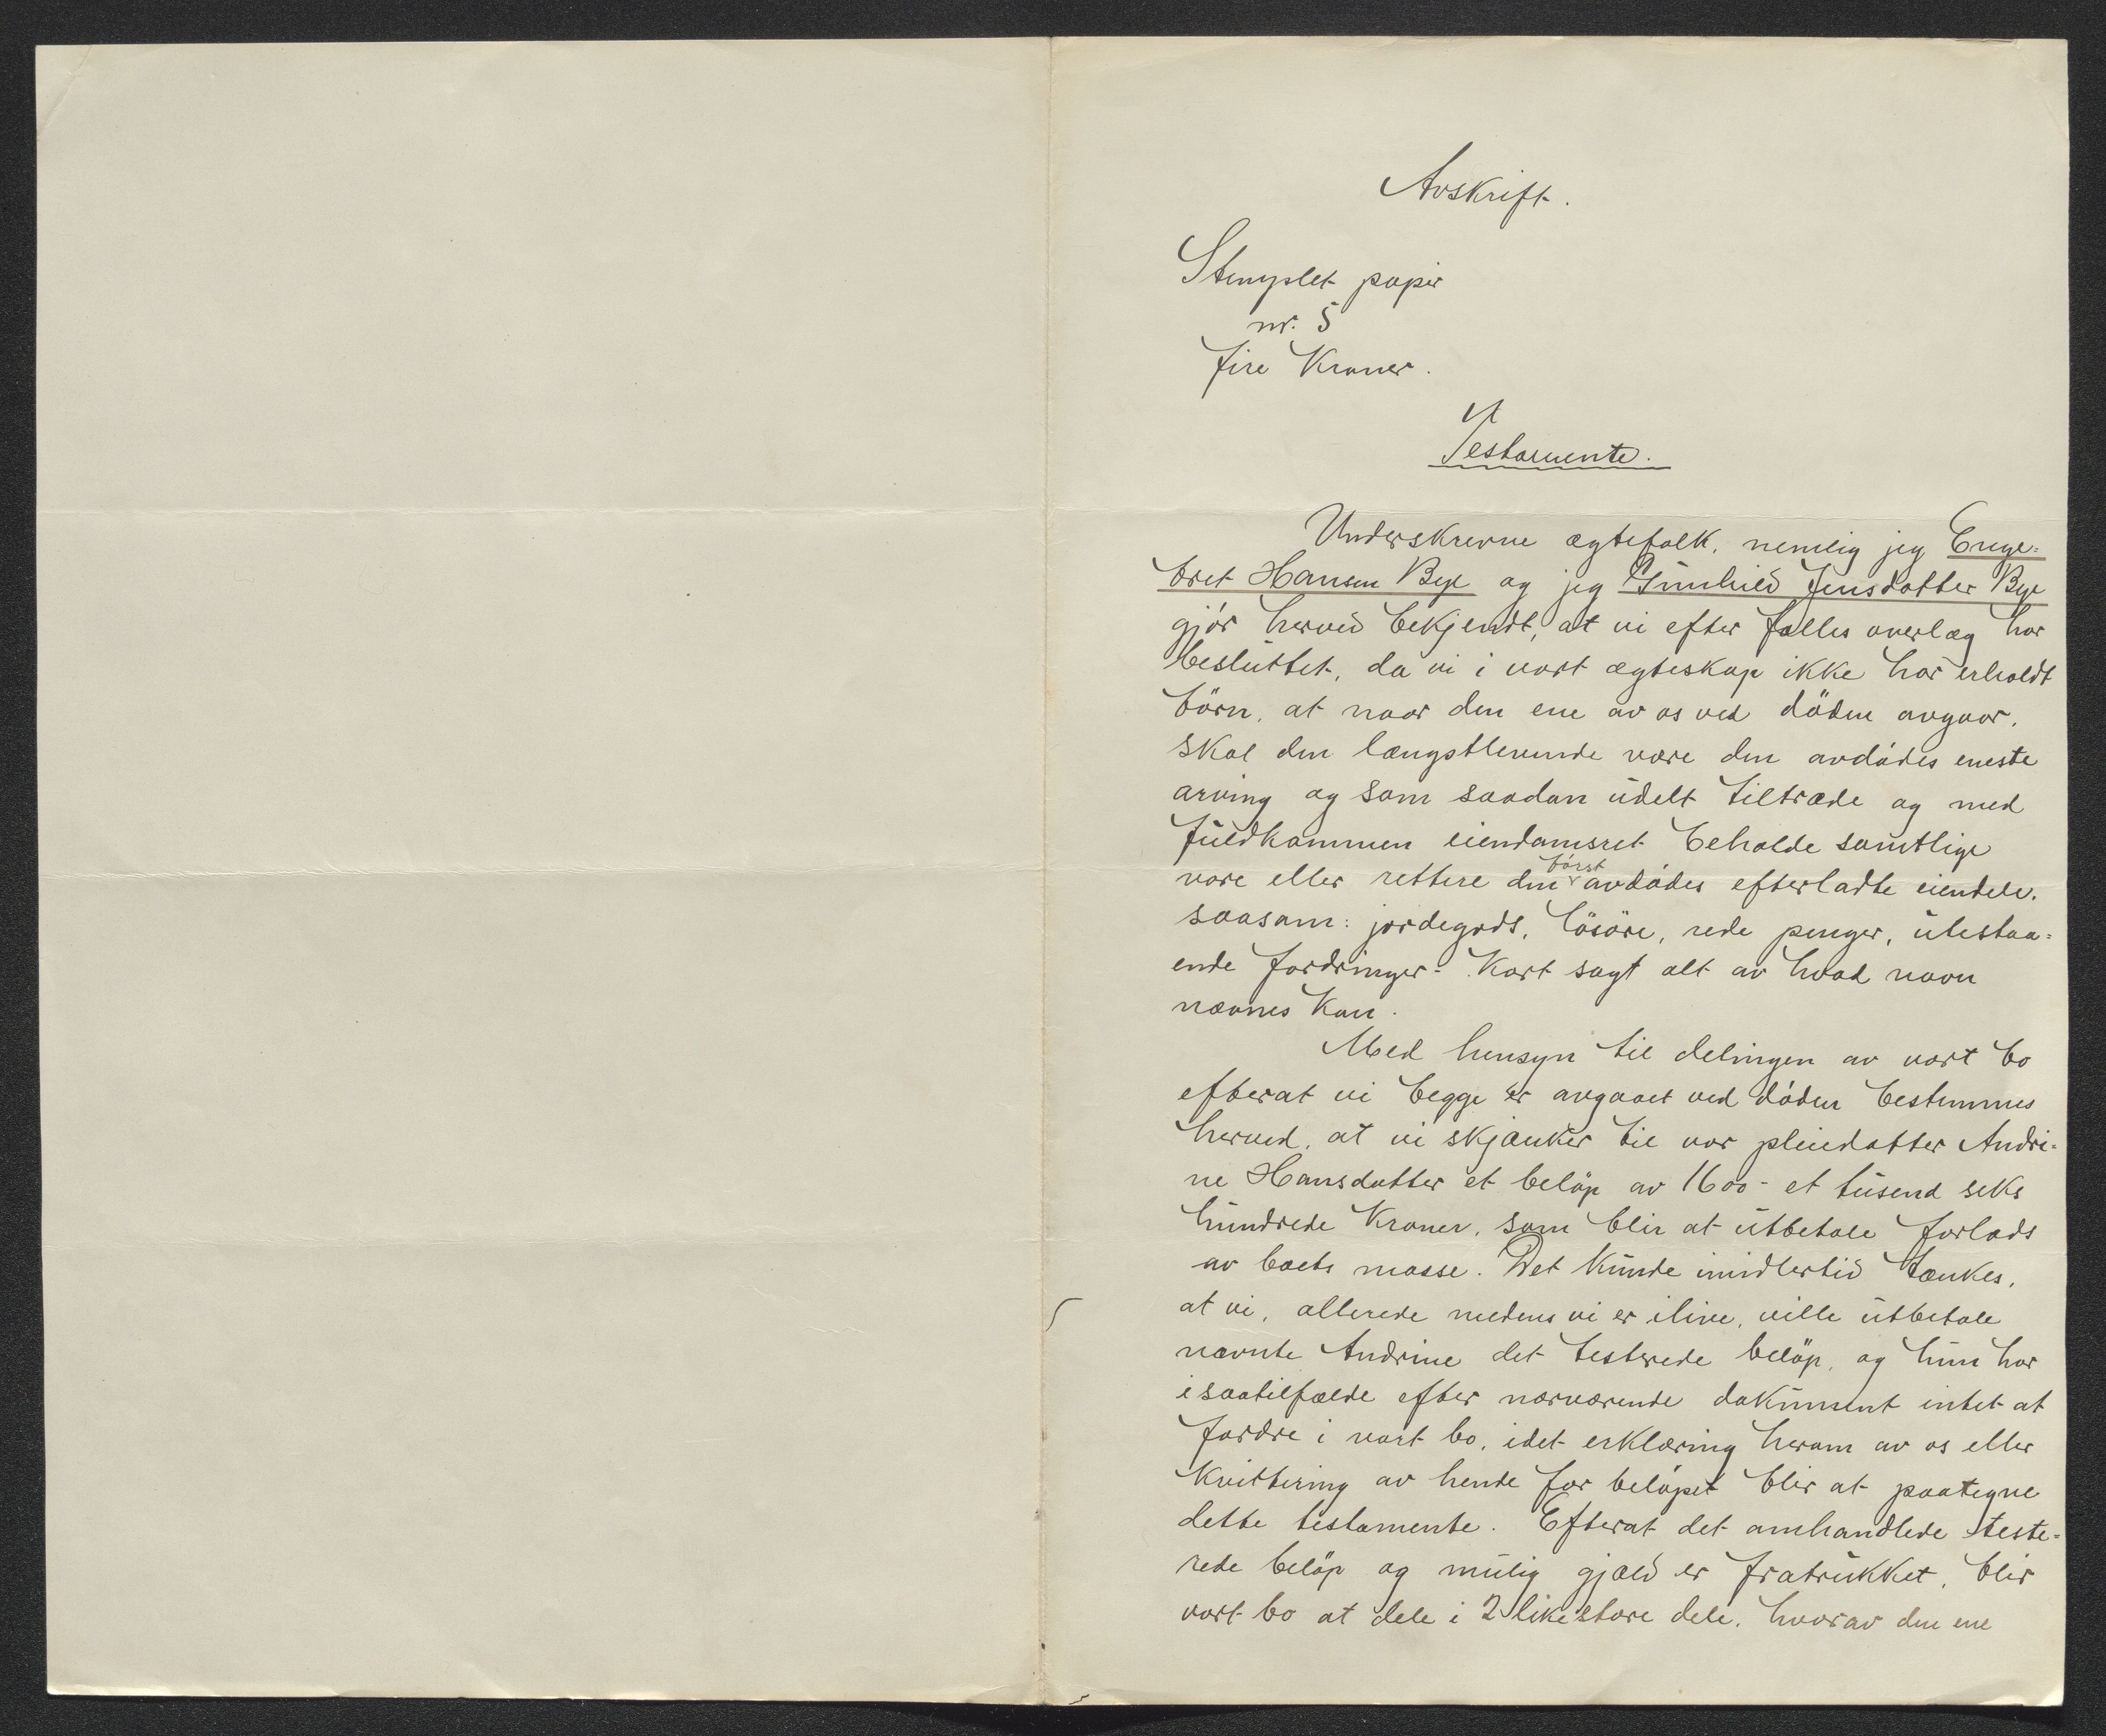 Avskrift.
Stemplet papir
nr. 5
fire Kroner.
Testamente.
Underskrevne ægtefolk, nemlig jeg Enge=
bret Hansen Bye og jeg Gunhild Jensdatter Bye
gjör herved bekjendt, at vi efter fælles overlæg har
besluttet, da vi i vort ægteskap ikke har erholdt
börn, at naar den ene av os ved döden avgaar,
skal den længstlevende være den avdödes eneste
arving og som saadan udelt tiltræde og med
fuldkommen eiendomsret beholde samtlige
vore eller rettere den först avdödes efterladte eiendele,
saasom: jordegods, lösöre, rede penger, utestaa=
ende fordringer - kort sagt alt av hvad navn
nævnes kan.
Med hensyn til delingen av vort bo
efterat vi begge er avgaaet ved döden bestemmes
herved, at vi skjænker til vor pleiedatter Andri=
ne Hansdatter et belöp av 1600 - et tusend seks
hundrede Kroner, som blir at utbetale forlods
av boets masse. Det kunde imidlertid tænkes,
at vi, allerede medens vi er ilive, ville utbetale
nævnte Andrine det testerede belöp, og hun har
isaatilfælde efter nærværende dokument intet at
fordre i vort bo, idet erklæring herom av os eller
kvittering av hende for belöpet blir at paategne
dette testamente. Efterat det omhandlede teste=
rede belöp og mulig gjæld er fratrukket, blir
vort bo at dele i 2 like store dele, hvorav den ene